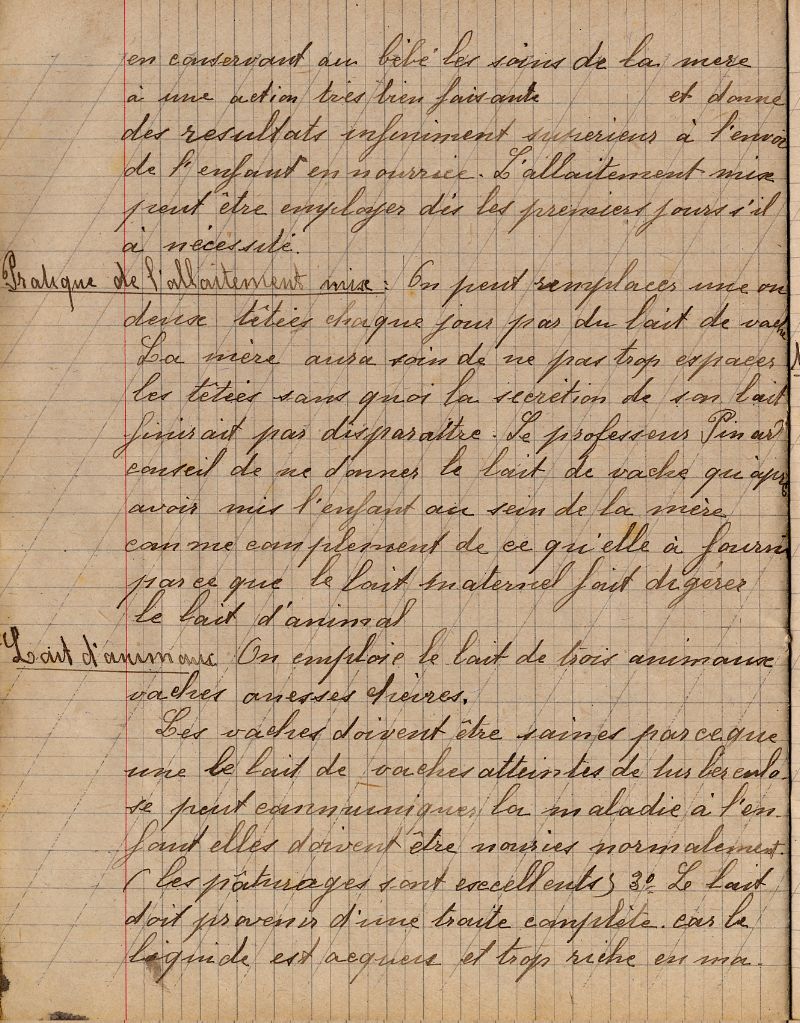 en conservant au bébé les soins de la mere
à une action très bien faisante et donne
des resultats infiniment superieur à l'envoi
de l'enfant en nourrice. L'allaitement mixe
peut être employer dès les premiers jours s'il
à nécessité.
Pratique de l'allaitement mixe : On peut remplacer une ou
deuse têtées chaque jour par du lait de vache
La mère aura soin de ne pas trop espacer
les têtées sans quoi la secrétion de son lait
finirait par disparaître. Le professeur Pinard
conseil de ne donner le lait de vache qu'après
avoir mis l'enfant au sein de la mère
comme complement de ce qu'elle à fourni
parce que le lait maternel fait digérer
le lait d'animal
Lait d'animaux On emploie le lait de trois animaux
vaches anesses chèvres.
Les vaches doivent être saines parce que
une le lait de vaches atteintes de turberculo-
se peut communiquer la maladie à l'en-
fant elles doivent être nouries normalement.
(les pâturages sont excellents) 3º Le lait
doit provenir d'une traite complète. car le
liquide est acqueux et trop riche en ma-